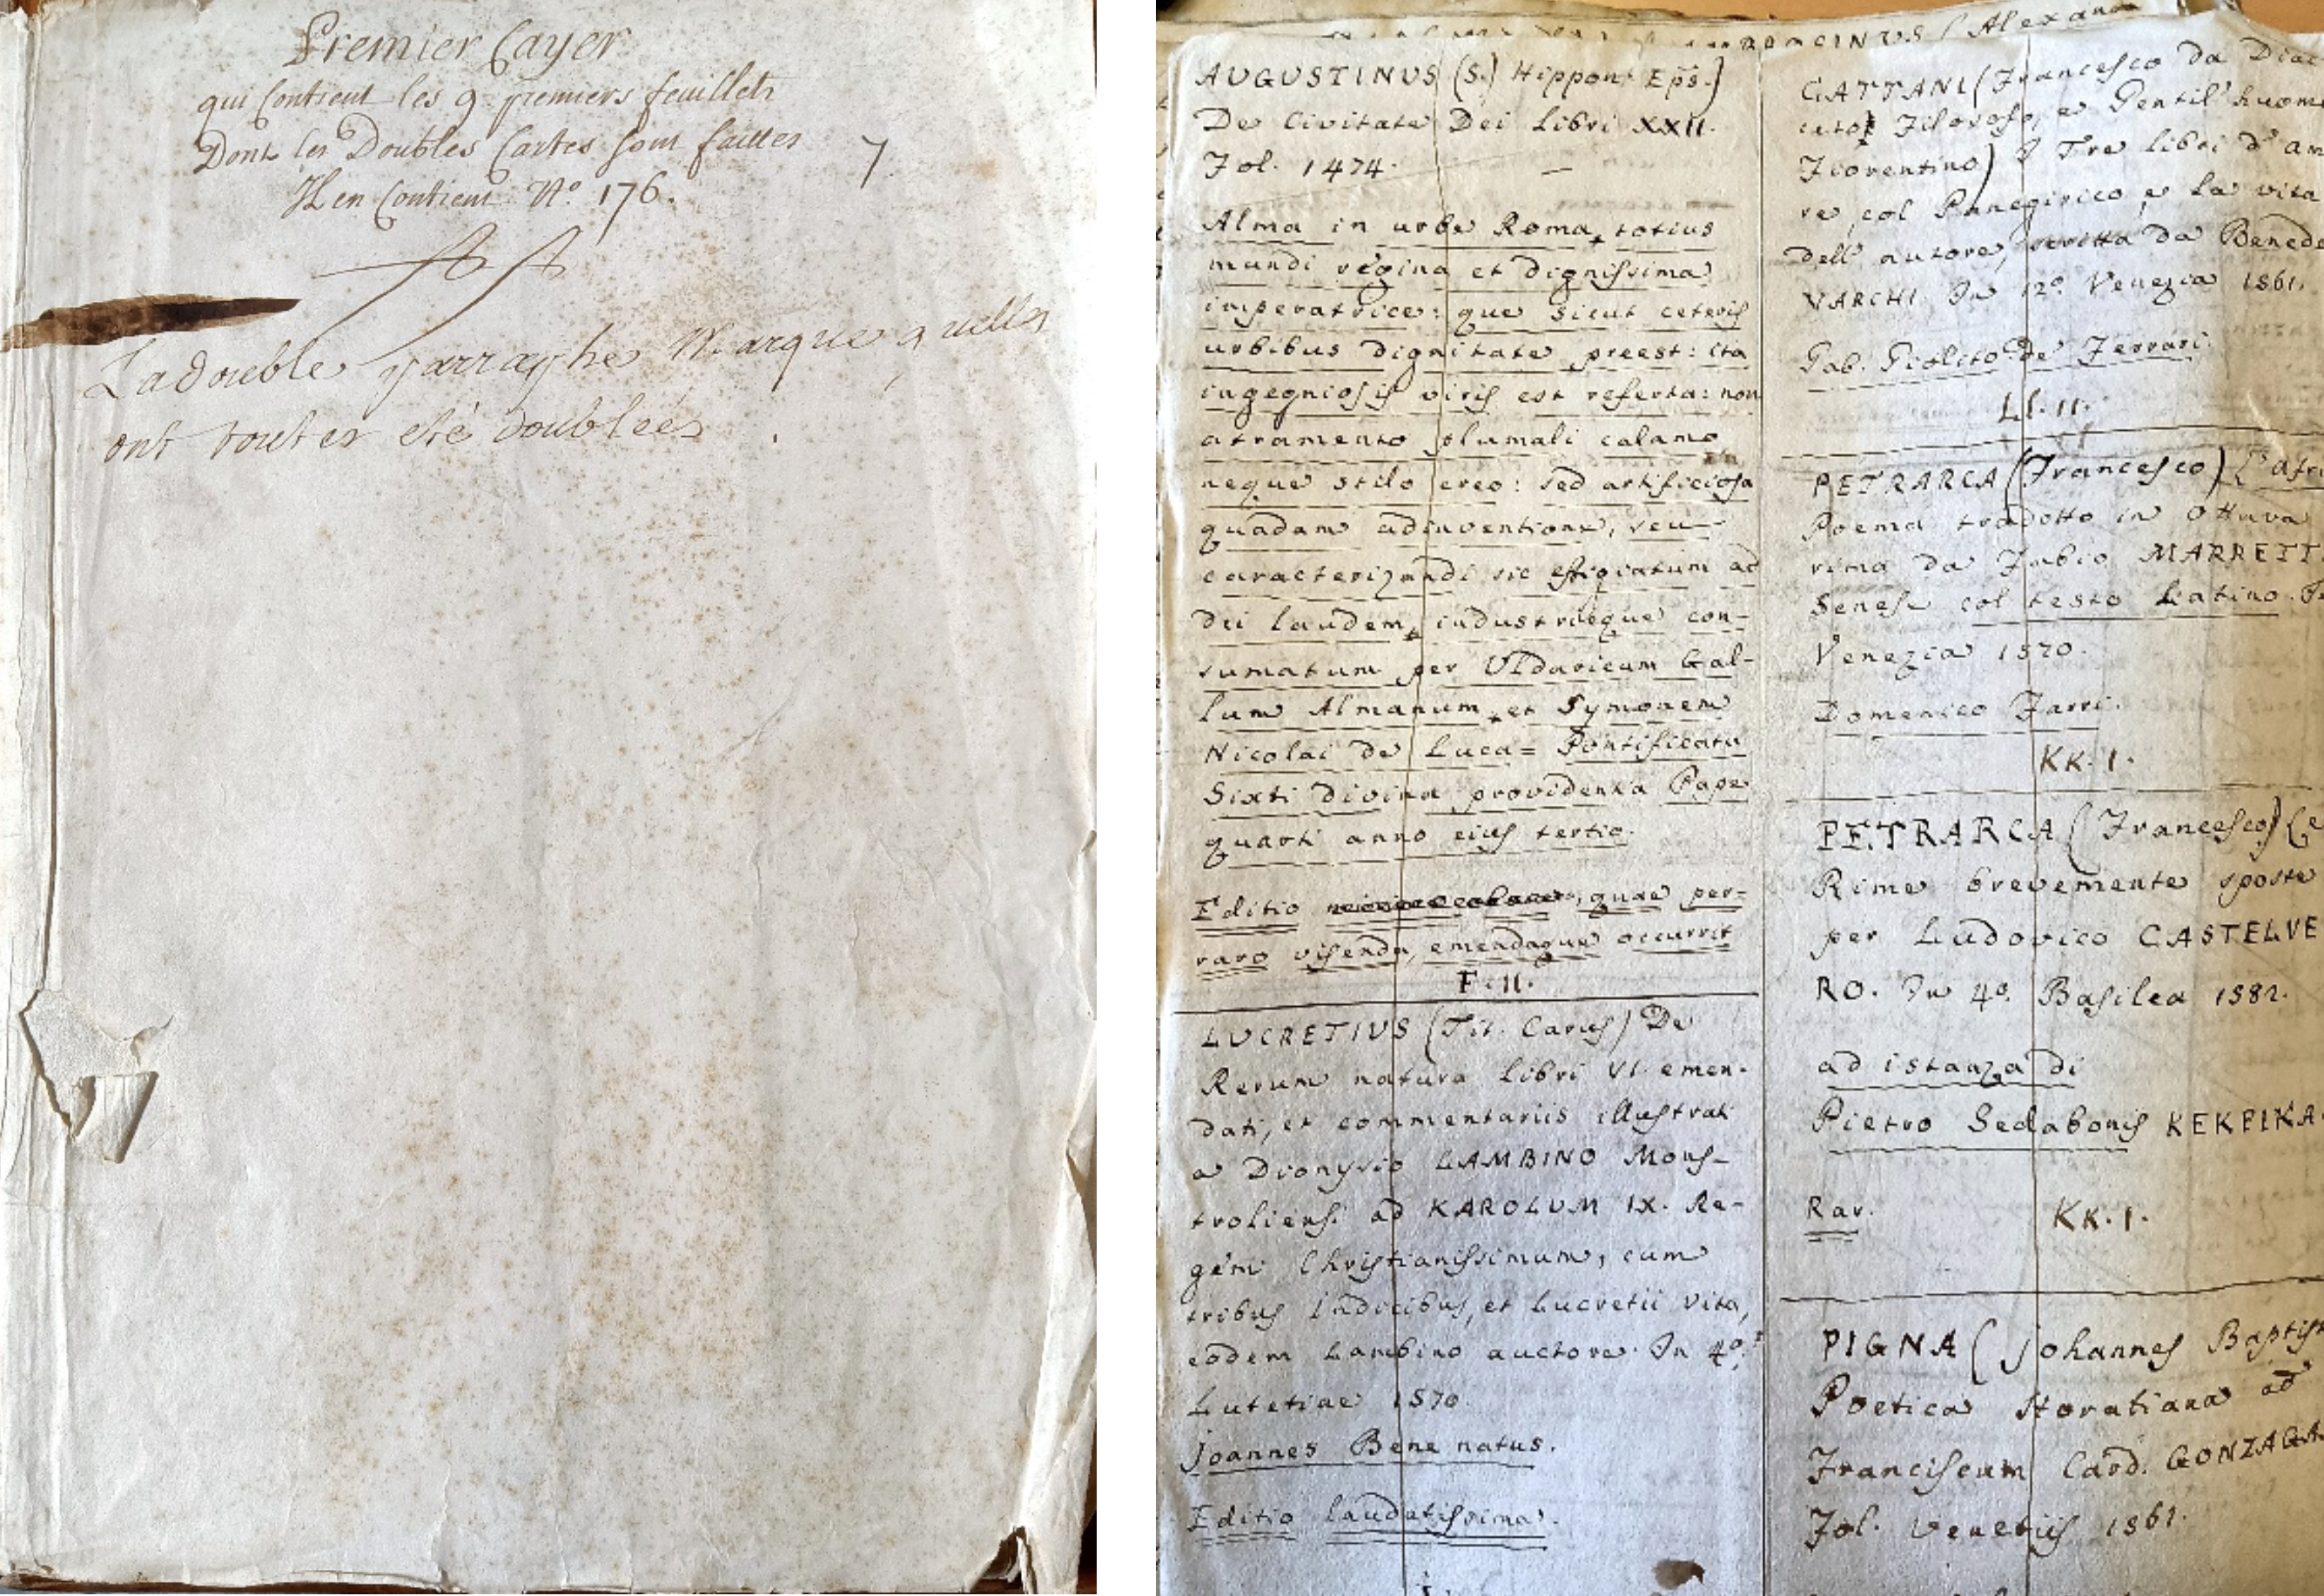 Premier Cayer
qui Contient les 9. premiers feuillets
Dont les Doubles Cartes sont faittes
Il en Contient N.o 176.
7
La double parraphe Marque quelles
ont toutes eté doublées
AUGUSTINUS (S.) Hippon. Eps.)
De Civitate Dei Libri XXII.
Fol. 1474.
Alma in urbe Roma, totius
mundi regina et dignissima
imperatrice: que sicut ceteris
urbibus dignitate preest: ita
ingegniosis viris est referta: non
atramento plumali calamo
neque stilo ereo: sed artificiosa
quadam adinventione, seu
caracterizandi sic effigiatum ad
dei laudem, industrieque con-
sumatum per Uldaricum Gal-
lum Almanum, et Symonem
Nicolai de Luca= Pontificatu
Sixti divina providentia Pape
quarti anno eius tertio.
Editio quae per-
raro visenda, emendaque occurrit
F. II.
LUCRETIUS (Tit. Carus) De
Rerum natura Libri VI. emen-
dati, et commentariis illustrati
a Dionysio LAMBINO Mons-
troliensi ad KAROLUM IX. Re-
gem Christianissimum, cum
tribus Indicibus, et Lucretii vita,
eodem Lambino auctore. In 4o.
Lutetiae 1570.
Joannes Bene natus.
Editio laudatissima.
CINUS (Alexan
CATTANI (Francesco da Diac
Filosofo, e Gentil'huom
Fiorentino) I Tre libri d'am
re, col Panegirico, e la vita
dell' autore, scritta da Benede
VARCHI. In 12o. Venezia 1561.
Gab. Giolito de Ferrari.
LL. II.
PETRARCA (Francesco) L'Afri
Poema tradotto in Ottava
rima da Fabio MARRETT
Senese col testo Latino.
Venezia 1570.
Domenico Farri.
KK. I.
PETRARCA (Francesco) Le
Rime brevemente sposte
per Ludovico CASTELVE
RO. In 4o. Basilea 1582.
ad istanza di
Pietro Sedabonis
Rar.
KK. I.
PIGNA (Johannes Baptist
Poetica Horatiana ad
Franciscum Card. GONZAGA
Fol. Venetiis 1561.